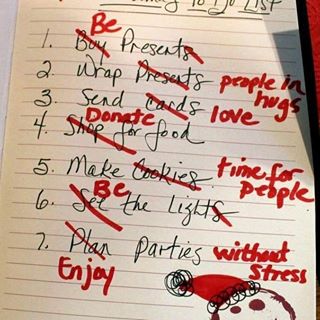 To Do List
Be
1. Buy Presents
2. Wrap Presents people in hugs
3. Send Cards love
Donate
4. Shop for food
5. Make Cookies time for people
Be
6. See the Lights
7. Plan Parties without Stress
Enjoy